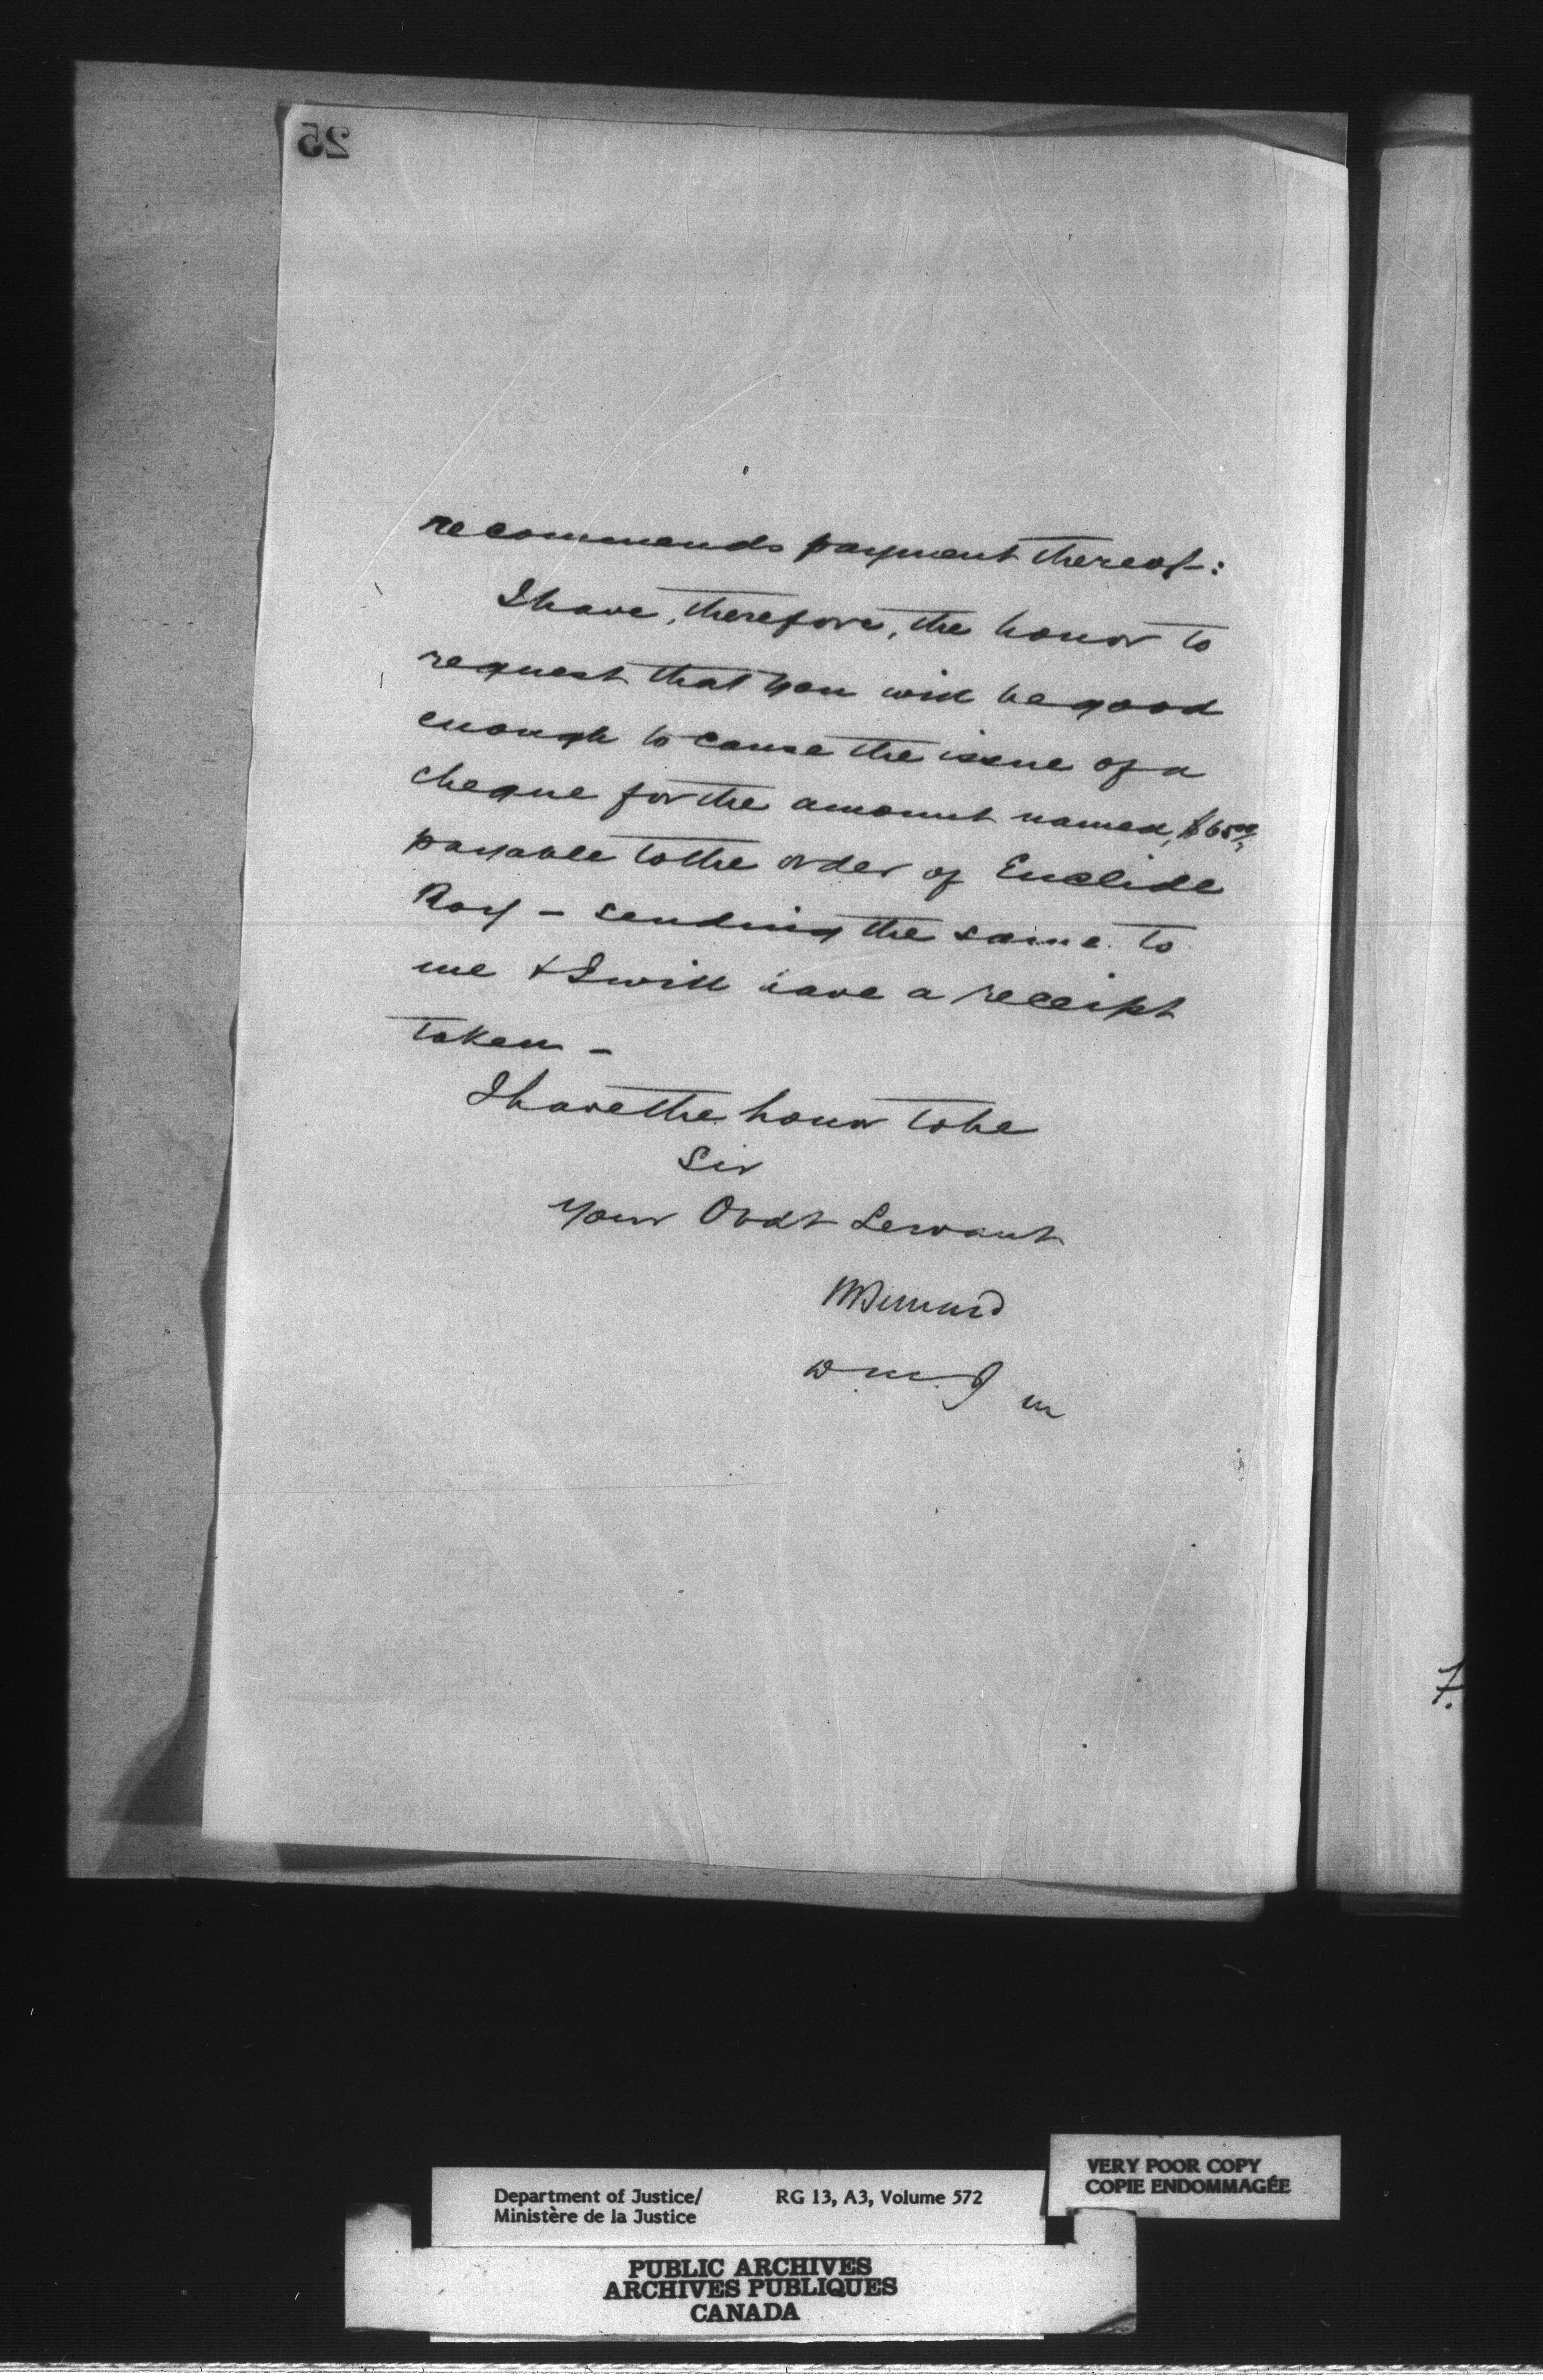 25
recommends payment thereof:
I have, therefore, the honor to
request that you will be good
enough to cause the issue of a
cheque for the amount named, $65⁰⁰/,
payable to the order of Euclide
Roy – sending the same to
me & I will have a receipt
taken –
I have the honor to be
Sir
Your Obdt Servant
HBernard
D.M.J
7.
Department of Justice/ RG 13, A3, Volume 572
Ministère de la Justice
VERY POOR COPY
COPIE ENDOMMAGÉE
PUBLIC ARCHIVES
ARCHIVES PUBLIQUES
CANADA